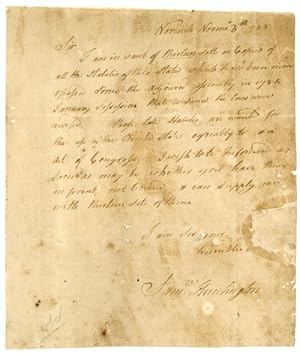 Norwich Novemr 8th 1788
Sir
I am in want of thirteen Sets or Copies of
all the Statutes of this State which have been
passed since the
January Session that is since the laws were
revised those late Statutes are wanted for
the use of the United States agreably to an
Act of Congress I wish to be informed as
soon as may be whether you have them
in print, not bound & can supply me
with thirteen sets of them
I am Sir your
humble
Saml Huntington